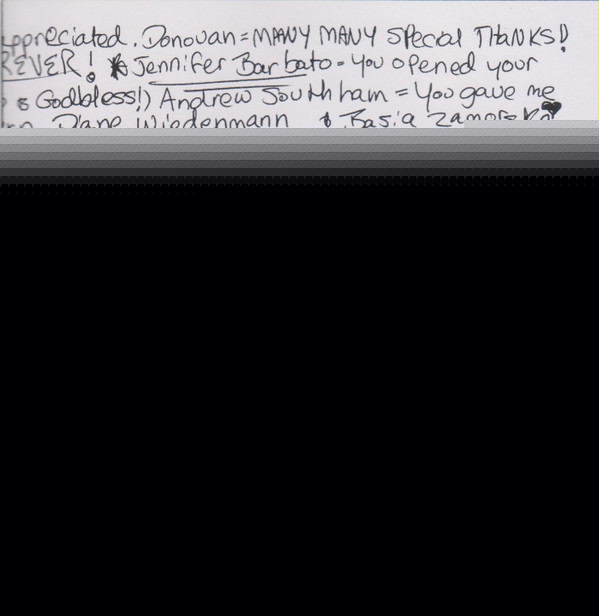 appreciated. Donovan = MANY MANY Special THANKS!
REVER! * Jennifer Barbato - you opened your
& Godbless!) Andrew Southham = You gave me
Diane Wiedenmann & Basia